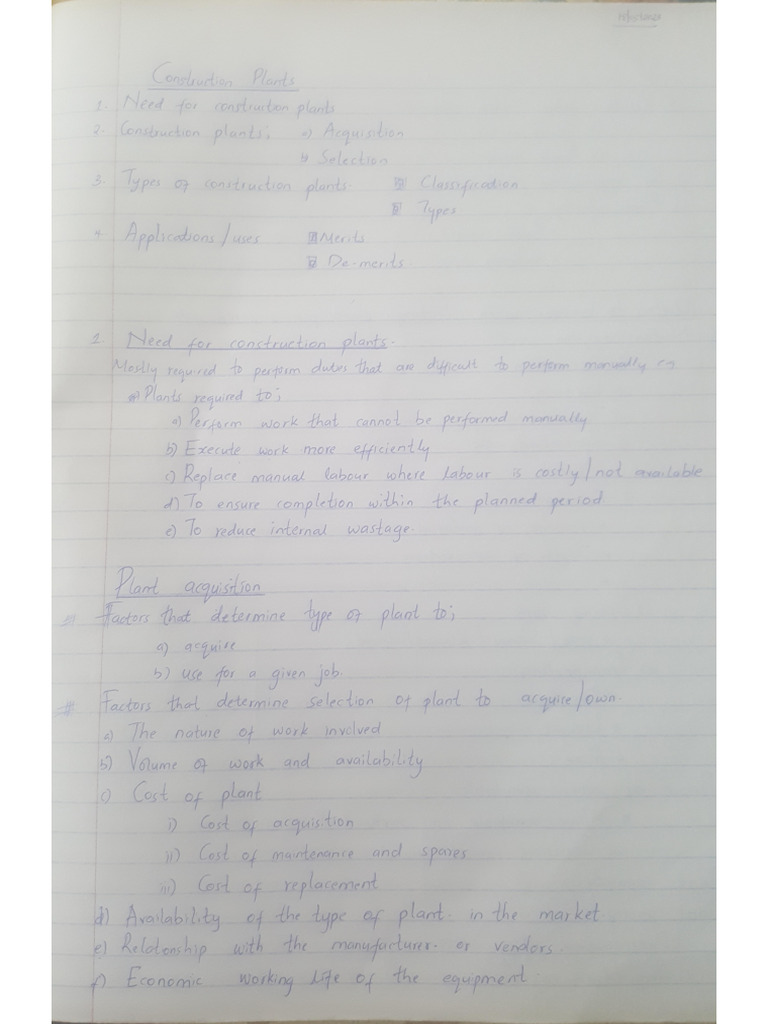 Construction Plants
1. Need for construction plants
2. Construction plants; a) Acquisition
b) Selection
3. Types of construction plants Classification
Types
4 Applications/uses Merits
De-merits
1. Need for construction plants.
Mostly required to perform duties that are difficult to perform manually
Plants required to;
a) Perform work that cannot be performed manually
b) Execute work more efficiently
c) Replace manual labour where labour is costly/not available
d) To ensure completion within the planned period.
e) To reduce internal wastage.
Plant acquisition
Factors that determine type of plant to;
a) acquire
b) use for a given job.
# Factors that determine selection of plant to acquire/own.
a) The nature of work involved
b) Volume of work and availability
c) Cost of plant
i) Cost of acquisition
ii) Cost of maintenance and spares
iii) Cost of replacement
d) Availability of the type of plant in the market
e) Relationship with the manufacturer or vendors.
f) Economic working life of the equipment.